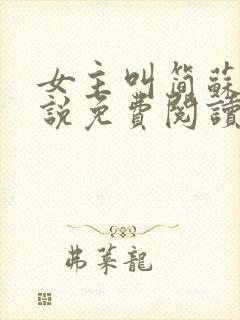 女主叫簡蘇
說免費閱讀
弗萊龍